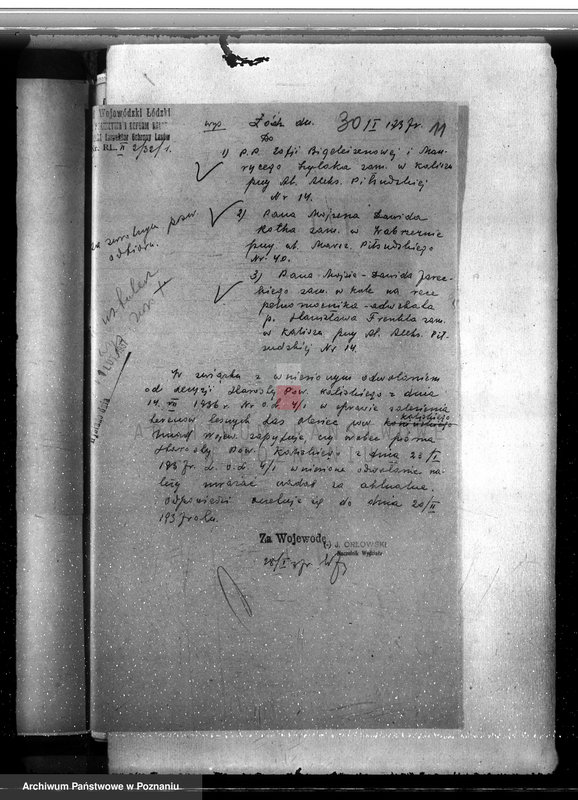 Wojewódzki Łódzki
Nr. RL. II 2/32/1.
wyp Łódź dn. 30 I 1937r. 11
Do
1) P.P. Zofji Bigeleizenowej i Mau-
rycego zam. w Kaliszu
przy Al. Aleks. Piłsudskiej
Nr 14.
2) Pana Mojżesza Dawida
Kotka zam. w
przy ul. Marsz. Piłsudskiego
Nr 40.
3) Pana Mojżesza-Dawida Jarec-
kiego zam. w Kole na ręce
pełnomocnika-adwokata
p. Stanisława Frenkla zam.
w Kaliszu przy Al. Aleks. Pił-
sudskiej Nr 14.
za zwrotnym pośw
odbioru.
W związku z wniesionym odwołaniem
od decyzji Starosty Pow. Kaliskiego z dnia
14 VII 1936 r. Nr o.d. 4/1 w sprawie zalesienia
terenów leśnych las pow
kaliskiego
Urząd Wojew. zapytuje, czy wobec pisma
Starosty Pow. Kaliskiego z dnia 20/I
1937r. L. o.d. 4/1 wniesione odwołanie na-
leży uważać nadal za aktualne.
Odpowiedzi oczekuje się do dnia 20/II
1937 roku.
Za Wojewodę
(-) J. ORŁOWSKI
Naczelnik Wydziału
Archiwum Państwowe w Poznaniu